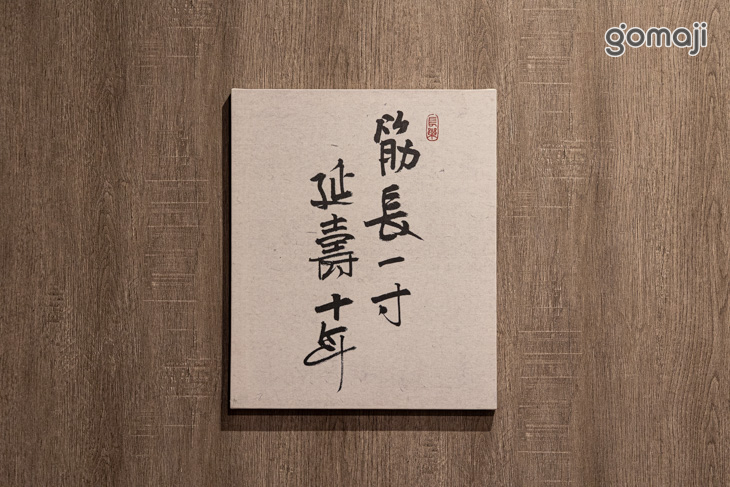 筋長一寸
延壽十年
gomaji